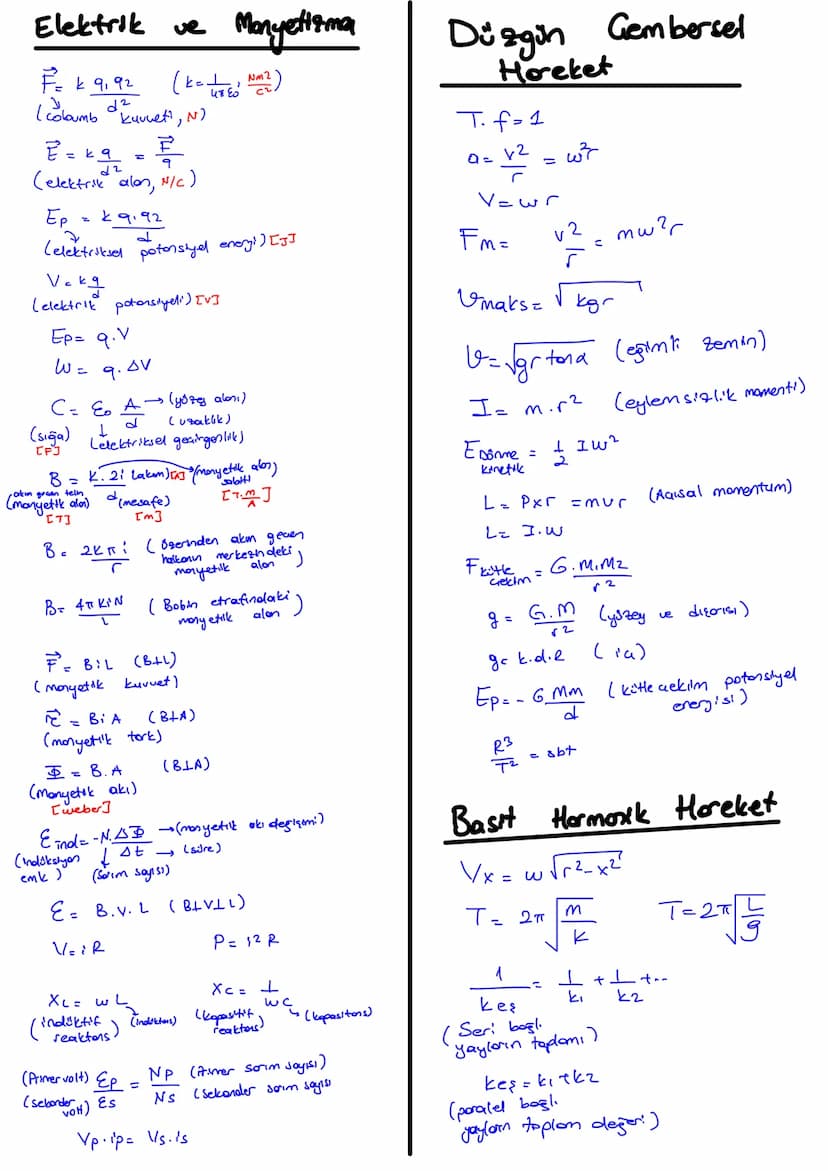 Elektrik ve Manyetizma
F⃗ = k q₁q₂ / d² (k = 1/4πε₀, Nm²/C²)
(coloumb kuvveti, N)
E⃗ = k q / d² = F⃗ / q
(elektrik alan, N/C)
Ep = k q₁.q₂ / d
(elektriksel potansiyel enerji) [J]
V = k q / d
(elektrik potansiyeli) [V]
Ep = q.V
W = q.ΔV
C = ε₀ A / d → (yüzey alanı)
(uzaklık)
(sığa) (elektriksel geçirgenlik)
[F]
B = K.2i / d (akım) [A] (manyetik alan sabiti)
(akım geçen telin manyetik alanı) (mesafe) [T.m/A]
[T] [m]
B = 2Kπi / r (üzerinden akım geçen halkanın merkezindeki manyetik alan)
B = 4πKiN / L (Bobin etrafındaki manyetik alan)
F⃗ = BiL (B⊥L)
(manyetik kuvvet)
τ⃗ = BiA (B⊥A)
(manyetik tork)
Φ = B.A (B⊥A)
(Manyetik akı)
[weber]
εind = -N.ΔΦ / Δt → (manyetik akı değişimi)
→ (süre)
(indüksiyon emk) (sarım sayısı)
ε = B.V.L (B⊥V⊥L)
V = iR P = i²R
XL = wL XC = 1 / wC
(indüktif reaktans) (indüktans) (kapasitif reaktans) (kapasitans)
(Primer volt) εp / εs = Np / Ns (Primer sarım sayısı)
(sekonder volt) (sekonder sarım sayısı)
Vp.ip = Vs.is
Düzgün Çembersel
Hareket
T.f = 1
a = v² / r = w²r
V = wr
Fm = v² / r = mw²r
Vmaks = √kgr
V = √gr tanα (eğimli zemin)
I = m.r² (eylemsizlik momenti)
EDönme kinetik = 1/2 Iw²
L = Pxr = mvr (Açısal momentum)
L = I.w
Fkütle çekim = G.M₁M₂ / r²
g = G.M / r² (yüzey ve dışarısı)
g = k.d.R (içi)
Ep = - GMm / d (kütle çekim potansiyel enerjisi)
R³ / T² = sbt
Basit Harmonik Hareket
Vx = w√r²-x²
T = 2π√m/k T = 2π√L/g
1 / keş = 1 / k₁ + 1 / k₂ + ...
(Seri bağlı yayların toplamı)
keş = k₁ + k₂
(paralel bağlı yayların toplam değeri)